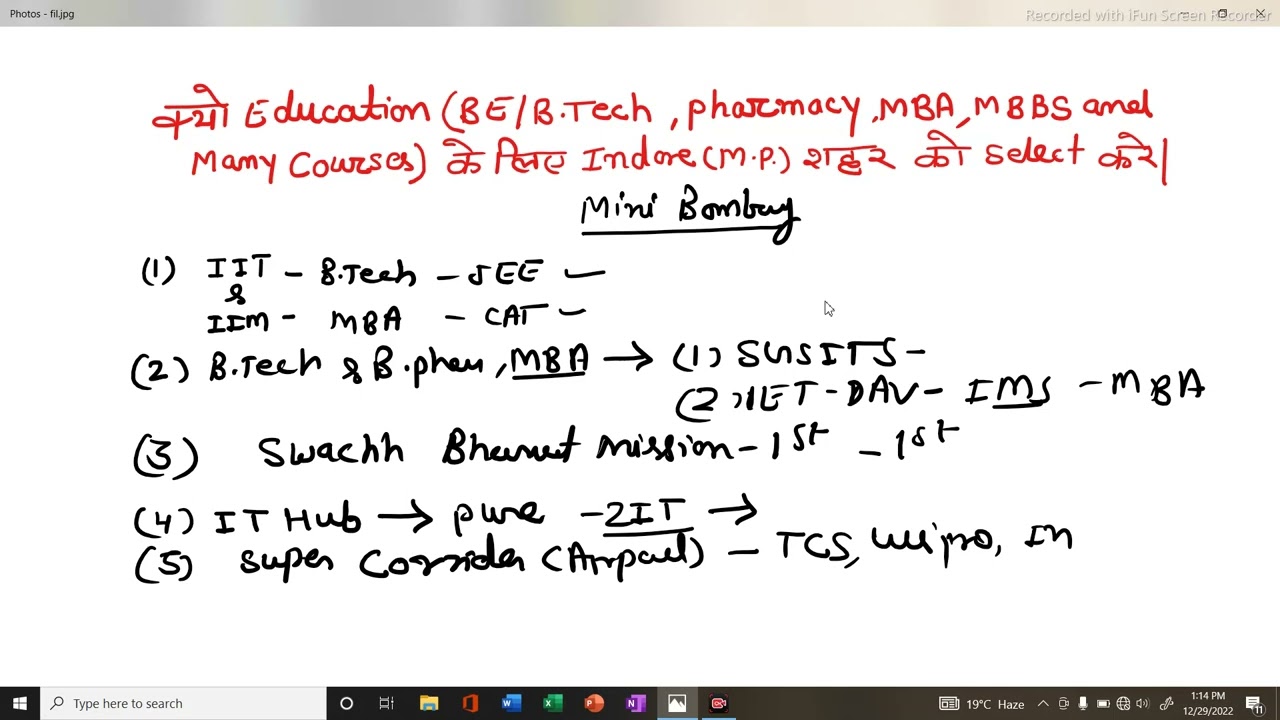 Photos - fil.jpg
Recorded with iFun Screen Recorder
क्यो Education (BE/B.Tech, pharmacy, MBA, MBBS and
Many Courses) के लिए Indore (M.P.) शहर को select करे।
Mini Bombay
(1) IIT - B.Tech - JEE
&
IIM - MBA - CAT
(2) B.Tech & B.phar, MBA → (1) SGSITS -
(2) IET - DAV - IMS - MBA
(3) Swachh Bharat Mission - 1st - 1st
(4) IT Hub → pune - 2 IT →
(5) Super Corridor (Airport) - TCS, Wipro, In
Type here to search
19°C Haze
1:14 PM
12/29/2022
11